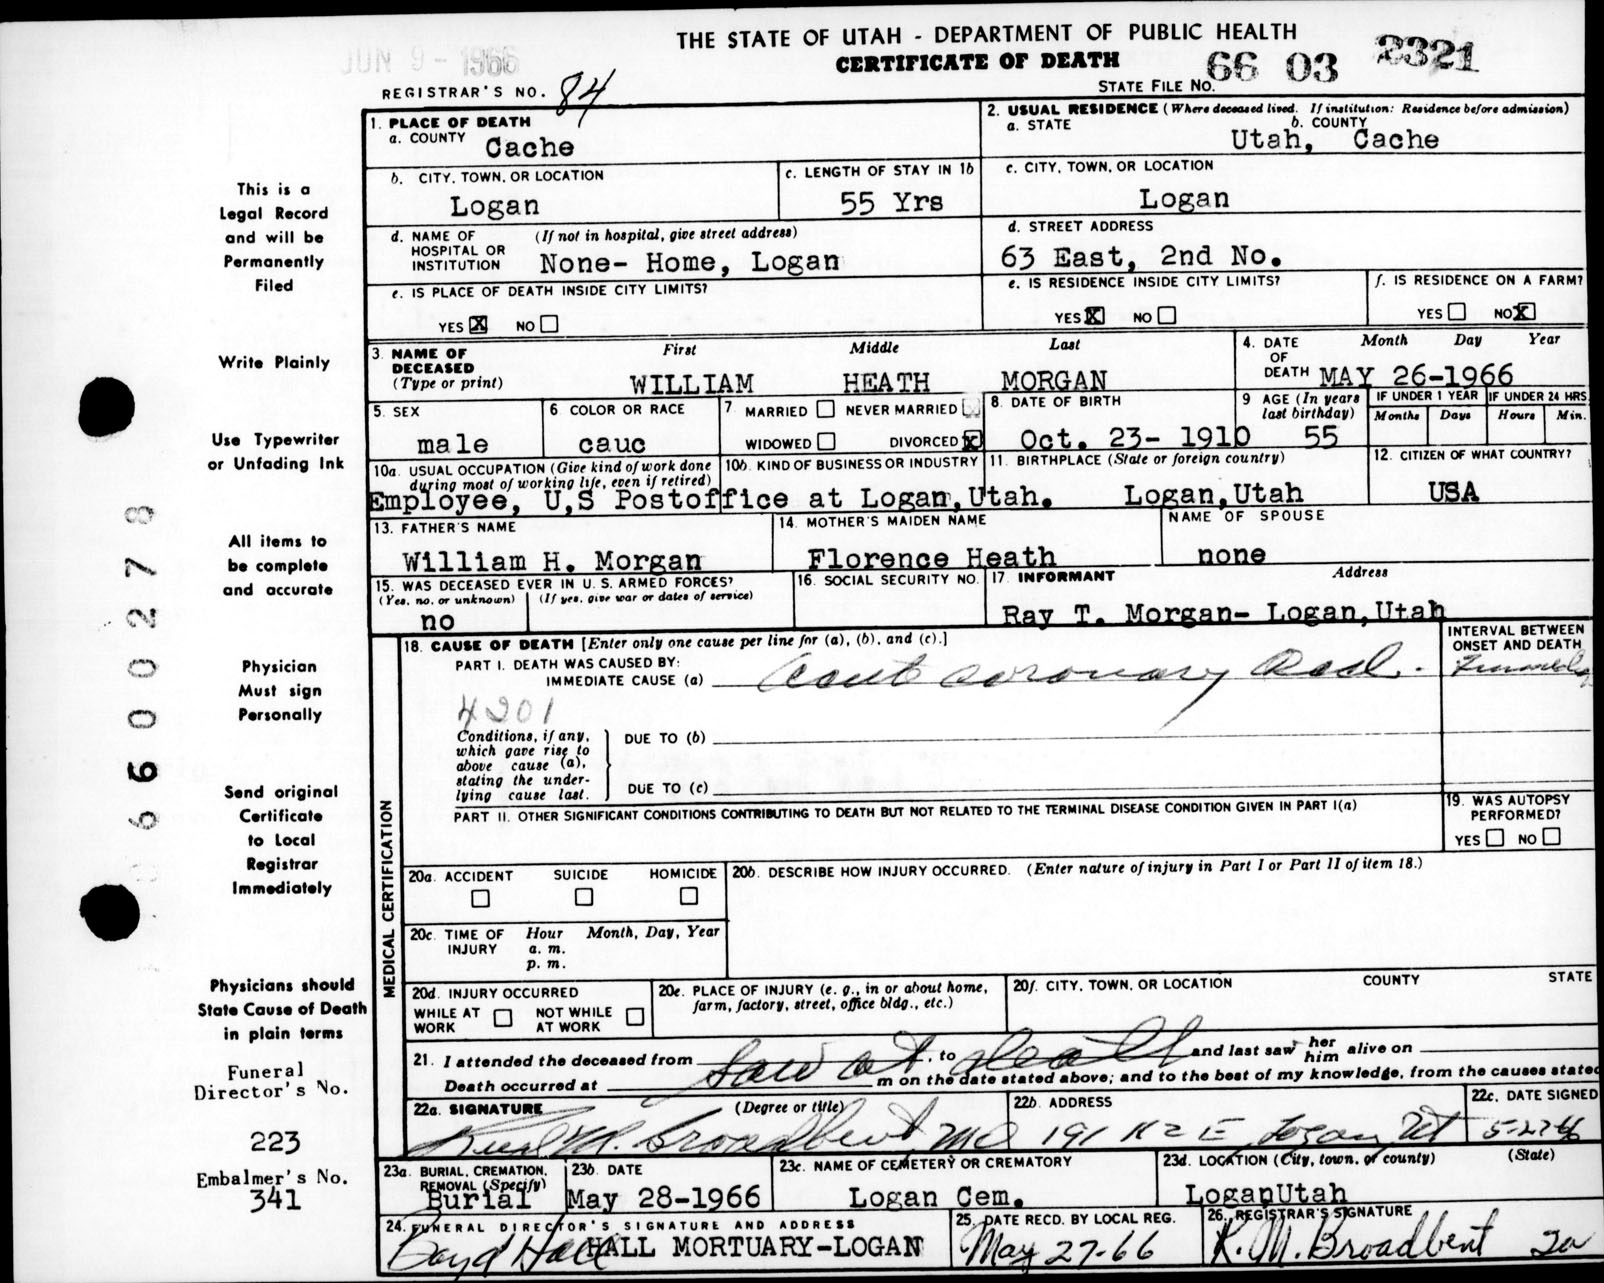 THE STATE OF UTAH - DEPARTMENT OF PUBLIC HEALTH
CERTIFICATE OF DEATH
JUN 9 - 1966
REGISTRAR'S NO. 84
STATE FILE NO. 66 03 2321
1. PLACE OF DEATH
a. COUNTY Cache
2. USUAL RESIDENCE (Where deceased lived. If institution: Residence before admission)
a. STATE b. COUNTY
Utah, Cache
b. CITY, TOWN, OR LOCATION
Logan
c. LENGTH OF STAY IN 1b
55 Yrs
c. CITY, TOWN, OR LOCATION
Logan
d. NAME OF HOSPITAL OR INSTITUTION (If not in hospital, give street address)
None- Home, Logan
d. STREET ADDRESS
63 East, 2nd No.
e. IS PLACE OF DEATH INSIDE CITY LIMITS?
YES X NO
e. IS RESIDENCE INSIDE CITY LIMITS?
YES X NO
f. IS RESIDENCE ON A FARM?
YES NO X
3. NAME OF DECEASED (Type or print)
First Middle Last
WILLIAM HEATH MORGAN
4. DATE OF DEATH Month Day Year
MAY 26-1966
5. SEX
male
6 COLOR OR RACE
cauc
7 MARRIED NEVER MARRIED
WIDOWED DIVORCED X
8. DATE OF BIRTH
Oct. 23- 1910
9 AGE (In years last birthday)
55
IF UNDER 1 YEAR IF UNDER 24 HRS.
Months Days Hours Min.
10a. USUAL OCCUPATION (Give kind of work done during most of working life, even if retired)
10b. KIND OF BUSINESS OR INDUSTRY
Employee, U,S Postoffice at Logan,Utah.
11. BIRTHPLACE (State or foreign country)
Logan,Utah
12. CITIZEN OF WHAT COUNTRY?
USA
13. FATHER'S NAME
William H. Morgan
14. MOTHER'S MAIDEN NAME
Florence Heath
NAME OF SPOUSE
none
15. WAS DECEASED EVER IN U. S. ARMED FORCES?
(Yes, no, or unknown) (If yes, give war or dates of service)
no
16. SOCIAL SECURITY NO.
17. INFORMANT Address
Ray T. Morgan- Logan,Utah
18. CAUSE OF DEATH [Enter only one cause per line for (a), (b), and (c).]
PART I. DEATH WAS CAUSED BY:
IMMEDIATE CAUSE (a) Acute coronary
INTERVAL BETWEEN ONSET AND DEATH
4201
Conditions, if any, which gave rise to above cause (a), stating the underlying cause last.
DUE TO (b)
DUE TO (c)
PART II. OTHER SIGNIFICANT CONDITIONS CONTRIBUTING TO DEATH BUT NOT RELATED TO THE TERMINAL DISEASE CONDITION GIVEN IN PART I(a)
19. WAS AUTOPSY PERFORMED?
YES NO
MEDICAL CERTIFICATION
20a. ACCIDENT SUICIDE HOMICIDE
20b. DESCRIBE HOW INJURY OCCURRED. (Enter nature of injury in Part I or Part II of item 18.)
20c. TIME OF INJURY Hour Month, Day, Year
a. m.
p. m.
20d. INJURY OCCURRED
WHILE AT WORK NOT WHILE AT WORK
20e. PLACE OF INJURY (e. g., in or about home, farm, factory, street, office bldg., etc.)
20f. CITY, TOWN, OR LOCATION COUNTY STATE
21. I attended the deceased from saw at, to death and last saw her him alive on
Death occurred at m on the date stated above; and to the best of my knowledge, from the causes stated
22a. SIGNATURE (Degree or title)
M. Broadbent MD
22b. ADDRESS
191 N 2 E Logan Ut
22c. DATE SIGNED
5-27-66
23a. BURIAL, CREMATION, REMOVAL (Specify)
Burial
23b. DATE
May 28-1966
23c. NAME OF CEMETERY OR CREMATORY
Logan Cem.
23d. LOCATION (City, town, or county) (State)
LoganUtah
24. FUNERAL DIRECTOR'S SIGNATURE AND ADDRESS
Boyd Hall HALL MORTUARY-LOGAN
25. DATE RECD. BY LOCAL REG.
May 27-66
26. REGISTRAR'S SIGNATURE
K. M. Broadbent
This is a
Legal Record
and will be
Permanently
Filed
Write Plainly
Use Typewriter
or Unfading Ink
All items to
be complete
and accurate
Physician
Must sign
Personally
Send original
Certificate
to Local
Registrar
Immediately
Physicians should
State Cause of Death
in plain terms
Funeral
Director's No.
223
Embalmer's No.
341
66 00278